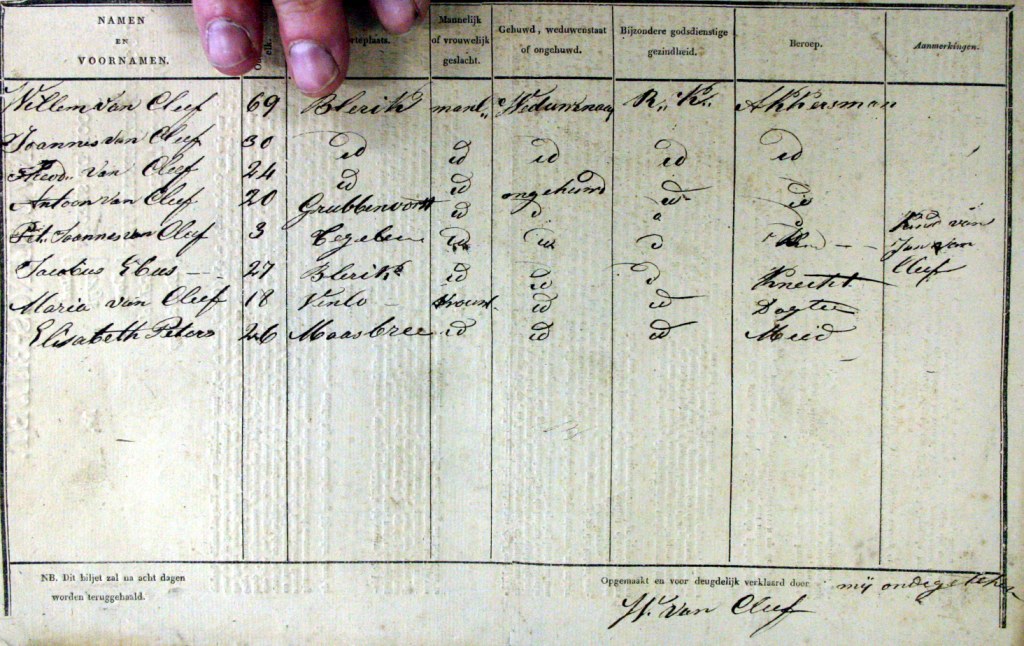 NAMEN EN VOORNAMEN. elk. rteplaats. Mannelijk of vrouwelijk geslacht. Gehuwd, weduwenstaat of ongehuwd. Bijzondere godsdienstige gezindheid. Beroep. Aanmerkingen.
Willem van Cleef 69 Blerik manl,, Weduwnaar R,, K,, Akkersman
Joannes van Cleef 30 id id id id id
Theod. van Cleef 24 id id ongehuwd id id
Antoon van Cleef 20 Grubbenvorst id d
Pet. Joannes van Cleef 3 id id d Kind van Jan van Cleef
Jacobus Ebus 27 Blerik id id d Knecht
Maria van Cleef 18 Venlo - vrouwl. id id Dogter
Elisabeth Peters 26 Maasbree id id id Meid
NB. Dit biljet zal na acht dagen
worden teruggehaald.
Opgemaakt en voor deugdelijk verklaard door mij
W. van Cleef